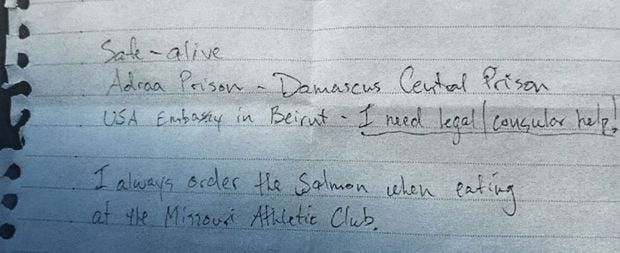 Safe-alive
Adraa Prison - Damascus Central Prison
USA Embassy in Beirut - I need legal/consular help!
I always order the Salmon when eating
at the Missouri Athletic Club.